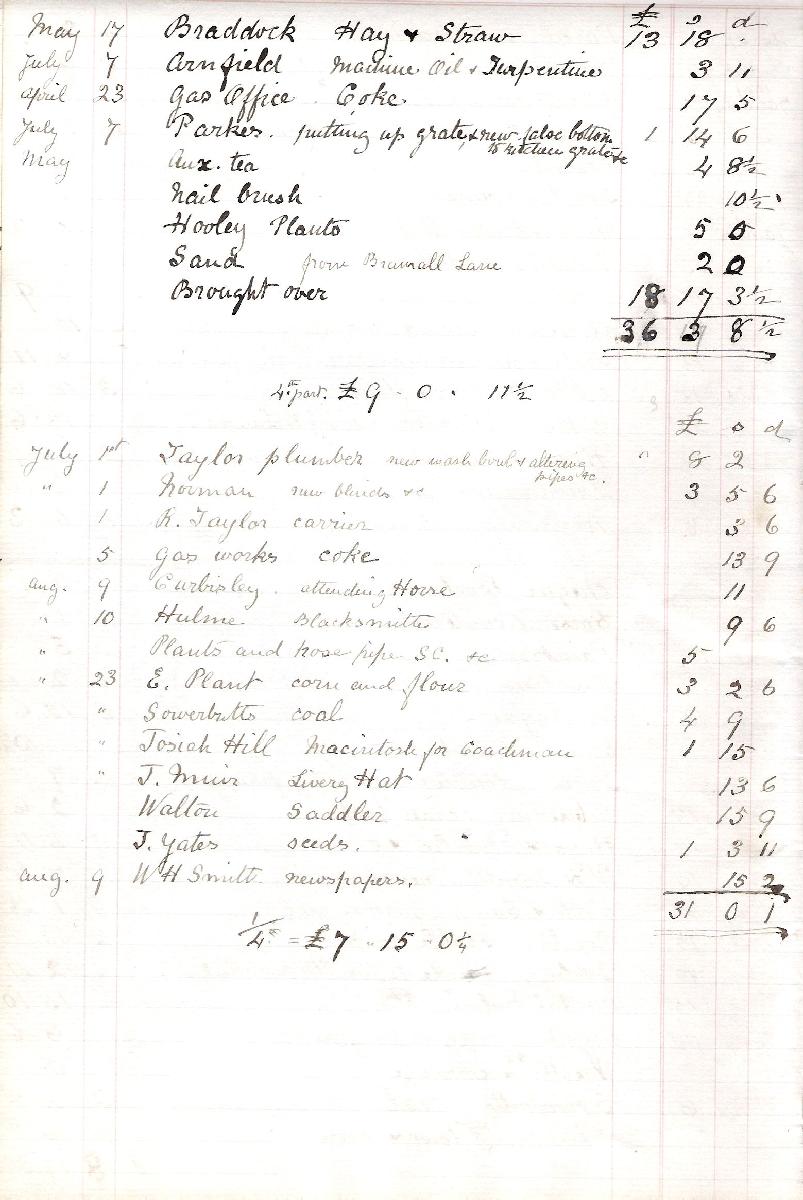 £ s d
May 17 Braddock Hay & Straw 13 18 .
July 7 Arnfield Machine Oil & Turpentine 3 11
April 23 Gas Office Coke. 17 5
July 7 Parkes. putting up grate, & new false bottom to kitchen grate &c 1 14 6
May Aux. tea 4 8½
Nail brush 10½
Hooley Plants 5 0
Sand from Bramall Lane 2 0
Brought over 18 17 3½
36 3 8½
4th part. £9 - 0 . 11½
£ s d
July 1st Taylor plumber new wash bowl & altering pipes &c. " 8 2
" 1 Norman new blinds &c 3 5 6
1 R. Taylor carrier 3 6
5 Gas works coke 13 9
Aug. 9 Curbisley. attending Horse 11
" 10 Hulme Blacksmith 9 6
" Plants and hose pipe S.C. &c 5
" 23 E. Plant corn and flour 3 2 6
" Sowerbutts coal 4 9
" Josiah Hill Macintosh for Coachman 1 15
" J. Muir Livery Hat 13 6
Walton Saddler 15 9
J. Yates seeds. 1 3 11
Aug. 9 W H Smith newspapers. 15 2
31 0 1
1/4th = £7 " 15 " 0¼